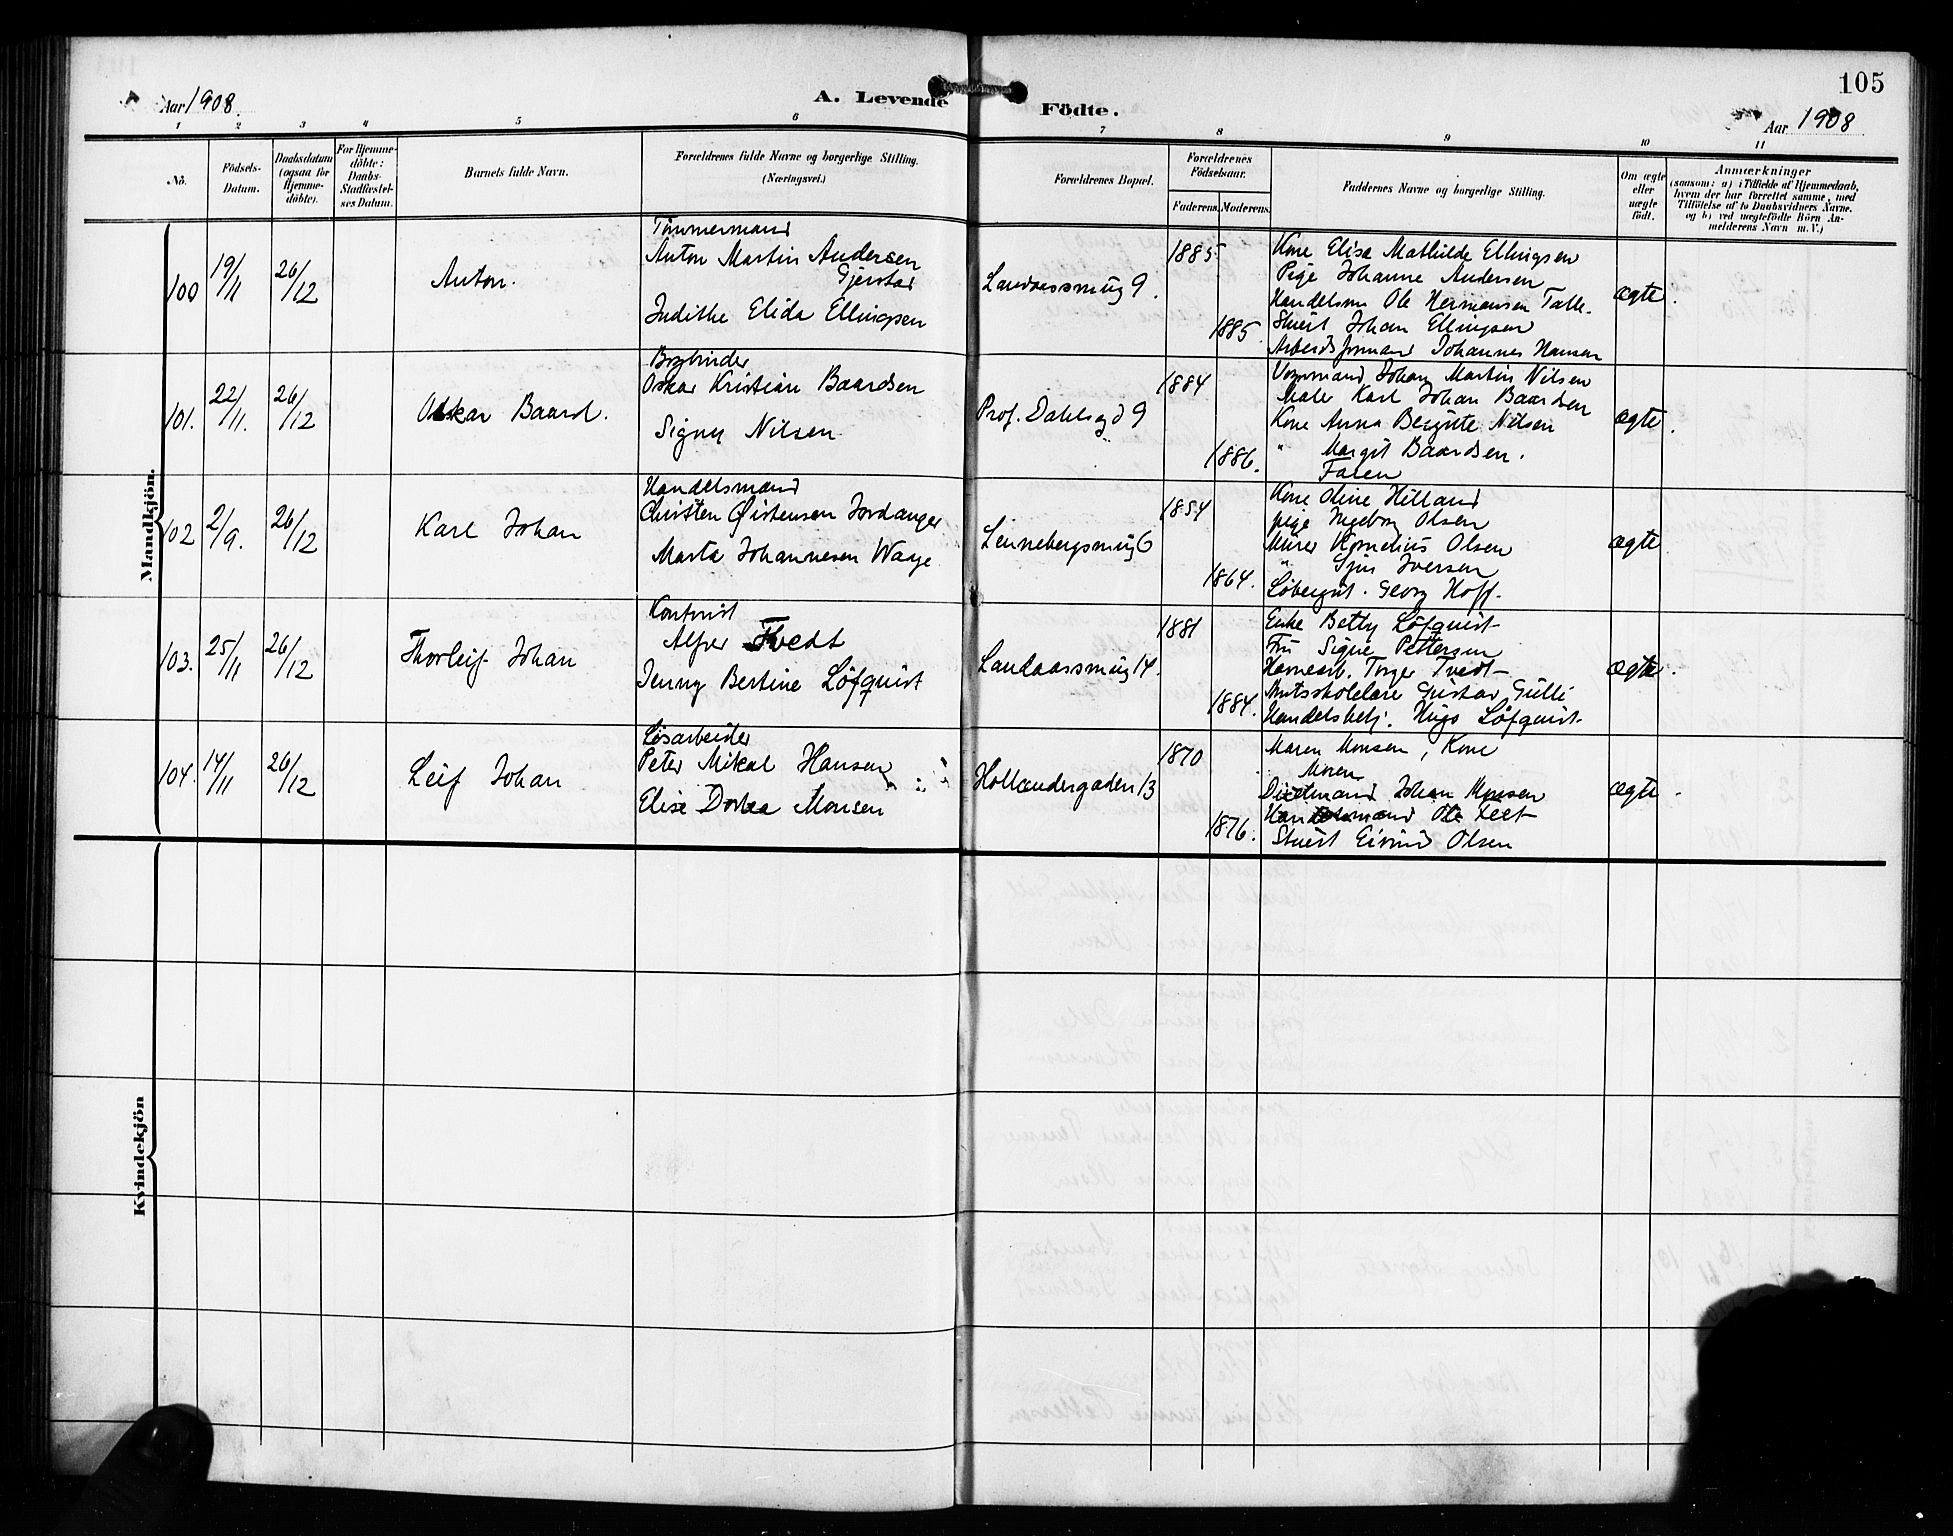 105
Aar 1908.
A. Levende Födte.
Aar 1908
1 2 3 4 5 6 7 8 9 10 11
No.
Födsels-Datum.
Daabsdatum (ogsaa for Hjemme-döbte).
For Hjemme-döbte: Daabs-Stadfæstel-ses Datum.
Barnets fulde Navn.
Forældrenes fulde Navne og borgerlige Stilling.
(Næringsvei.)
Forældrenes Bopæl.
Forældrenes Födselsaar.
Faderens. Moderens.
Faddernes Navne og borgerlige Stilling.
Om ægte eller uægte födt.
Anmærkninger
(saasom: a) i Tilfælde af Hjemmedaab,
hvem der har forrettet samme, med
Tilföielse af to Daabsvidners Navne.
og b) ved uægtefödte Börn An-
melderens Navn m. V.)
Mandkjön.
100 19/11 26/12 Anton.
Tömmermand
Anton Martin Andersen
Gjerstad
Judithe Elida Ellingsen
Landaassmug 9.
1885.
1885.
Kone Elisa Mathilde Ellingsen
Pige Johanne Andersen
Handelsm Ole Hermansen Talle.
Stuert Johan Ellingsen
Arbeidsformand Johannes Hansen
ægte.
101. 22/11. 26/12 Oskar Baard.
Bogbinder
Oskar Kristian Baardsen
Signy Nilsen
Prof. Dahlsgd 9
1884
1886.
Vognmand Johan Martin Nilsen
Maler Karl Johan Baardsen
Kone Anna Bergitte Nilsen
" Margit Baardsen.
Faren
ægte.
102 2/9. 26/12 Karl Johan
Handelsmand
Christen Øistensen Jordanger
Marta Johannesen Waage
Lennebergsmug 6
1854
1864.
Kone Oline Hilland
pige Ingeborg Olsen
Murer Kornelius Olsen
" Iversen
Georg Hoff.
ægte
103. 25/11 26/12 Thorleif Johan
Kontorist
Alfred Tvedt
Jenny Bertine Löfquist
Landaassmug 14.
1881
1884.
Enke Betty Löfquist
Fru Signe Pettersen
Havnearb. Torger Tvedt
Amtsskolelære Gustav Gulli
Handelsbetj. Hugo Löfquist
ægte.
104. 14/11 26/12 Leif Johan
Løsarbeider
Peter Mikal Hansen
Elise Dorthea Monsen
Hollændergaden 13
1870
1876.
Maren Monsen, Kone
Moren
Johan Monsen
Handelsmand Ole Feet
Stuert Eivind Olsen
ægte.
Kvindekjön